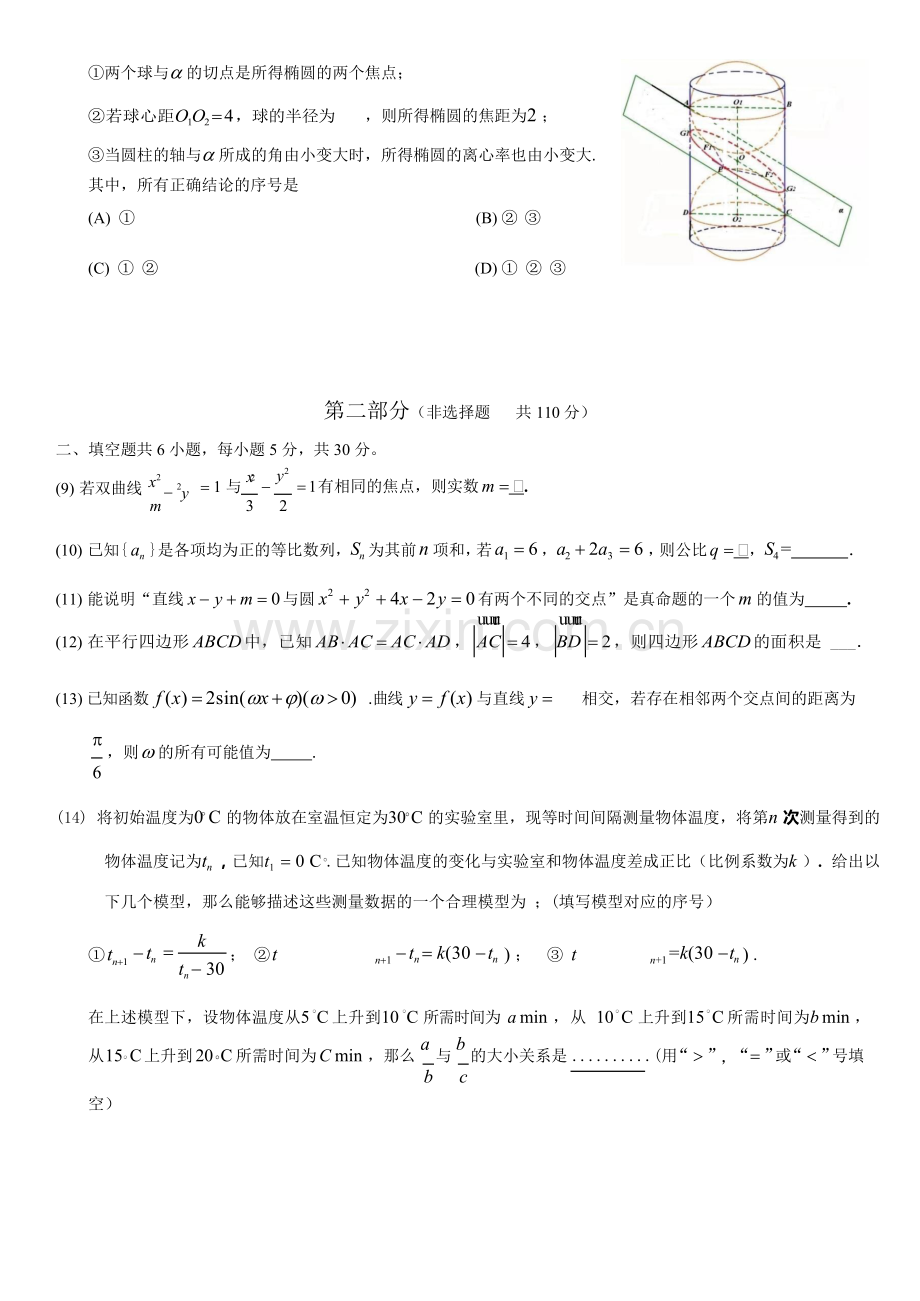 ①两个球与α的切点是所得椭圆的两个焦点；
②若球心距O₁O₂=4，球的半径为 ，则所得椭圆的焦距为2；
③当圆柱的轴与α所成的角由小变大时，所得椭圆的离心率也由小变大.
其中，所有正确结论的序号是
(A) ① (B) ② ③
(C) ① ② (D) ① ② ③
A O1 B
G1 F1 O
E F2 G2
D O2 C α
第二部分（非选择题 共 110 分）
二、填空题共 6 小题，每小题 5 分，共 30 分。
(9) 若双曲线 x²/m − ²y = 1 与 x²/3 − y²/2 = 1 有相同的焦点，则实数 m = □.
(10) 已知{ aₙ }是各项均为正的等比数列，Sₙ 为其前 n 项和，若 a₁ = 6，a₂ + 2a₃ = 6，则公比 q = □，S₄ = _______.
(11) 能说明“直线 x − y + m = 0 与圆 x² + y² + 4x − 2y = 0 有两个不同的交点”是真命题的一个 m 的值为_____.
(12) 在平行四边形 ABCD 中，已知 AB · AC = AC · AD，|AC| = 4，|BD| = 2，则四边形 ABCD 的面积是 ___.
(13) 已知函数 f(x) = 2sin(ωx+φ)(ω>0) .曲线 y = f(x) 与直线 y = 相交，若存在相邻两个交点间的距离为
π/6，则ω的所有可能值为_____.
(14) 将初始温度为0°C 的物体放在室温恒定为30°C 的实验室里，现等时间间隔测量物体温度，将第n 次测量得到的
物体温度记为tₙ，已知t₁ = 0 C°. 已知物体温度的变化与实验室和物体温度差成正比（比例系数为k ）. 给出以
下几个模型，那么能够描述这些测量数据的一个合理模型为 ；(填写模型对应的序号）
①tₙ₊₁ − tₙ = k/(tₙ − 30)； ②t ₙ₊₁ − tₙ = k(30 − tₙ )； ③ t ₙ₊₁ =k(30 − tₙ ) .
在上述模型下，设物体温度从5 °C 上升到10 °C 所需时间为 a min，从 10°C 上升到15°C 所需时间为b min，
从15°C 上升到 20°C 所需时间为C min，那么 a/b 与 b/c 的大小关系是 .......... (用“＞”，“＝”或“＜”号填
空）
www.zixin.com.cn